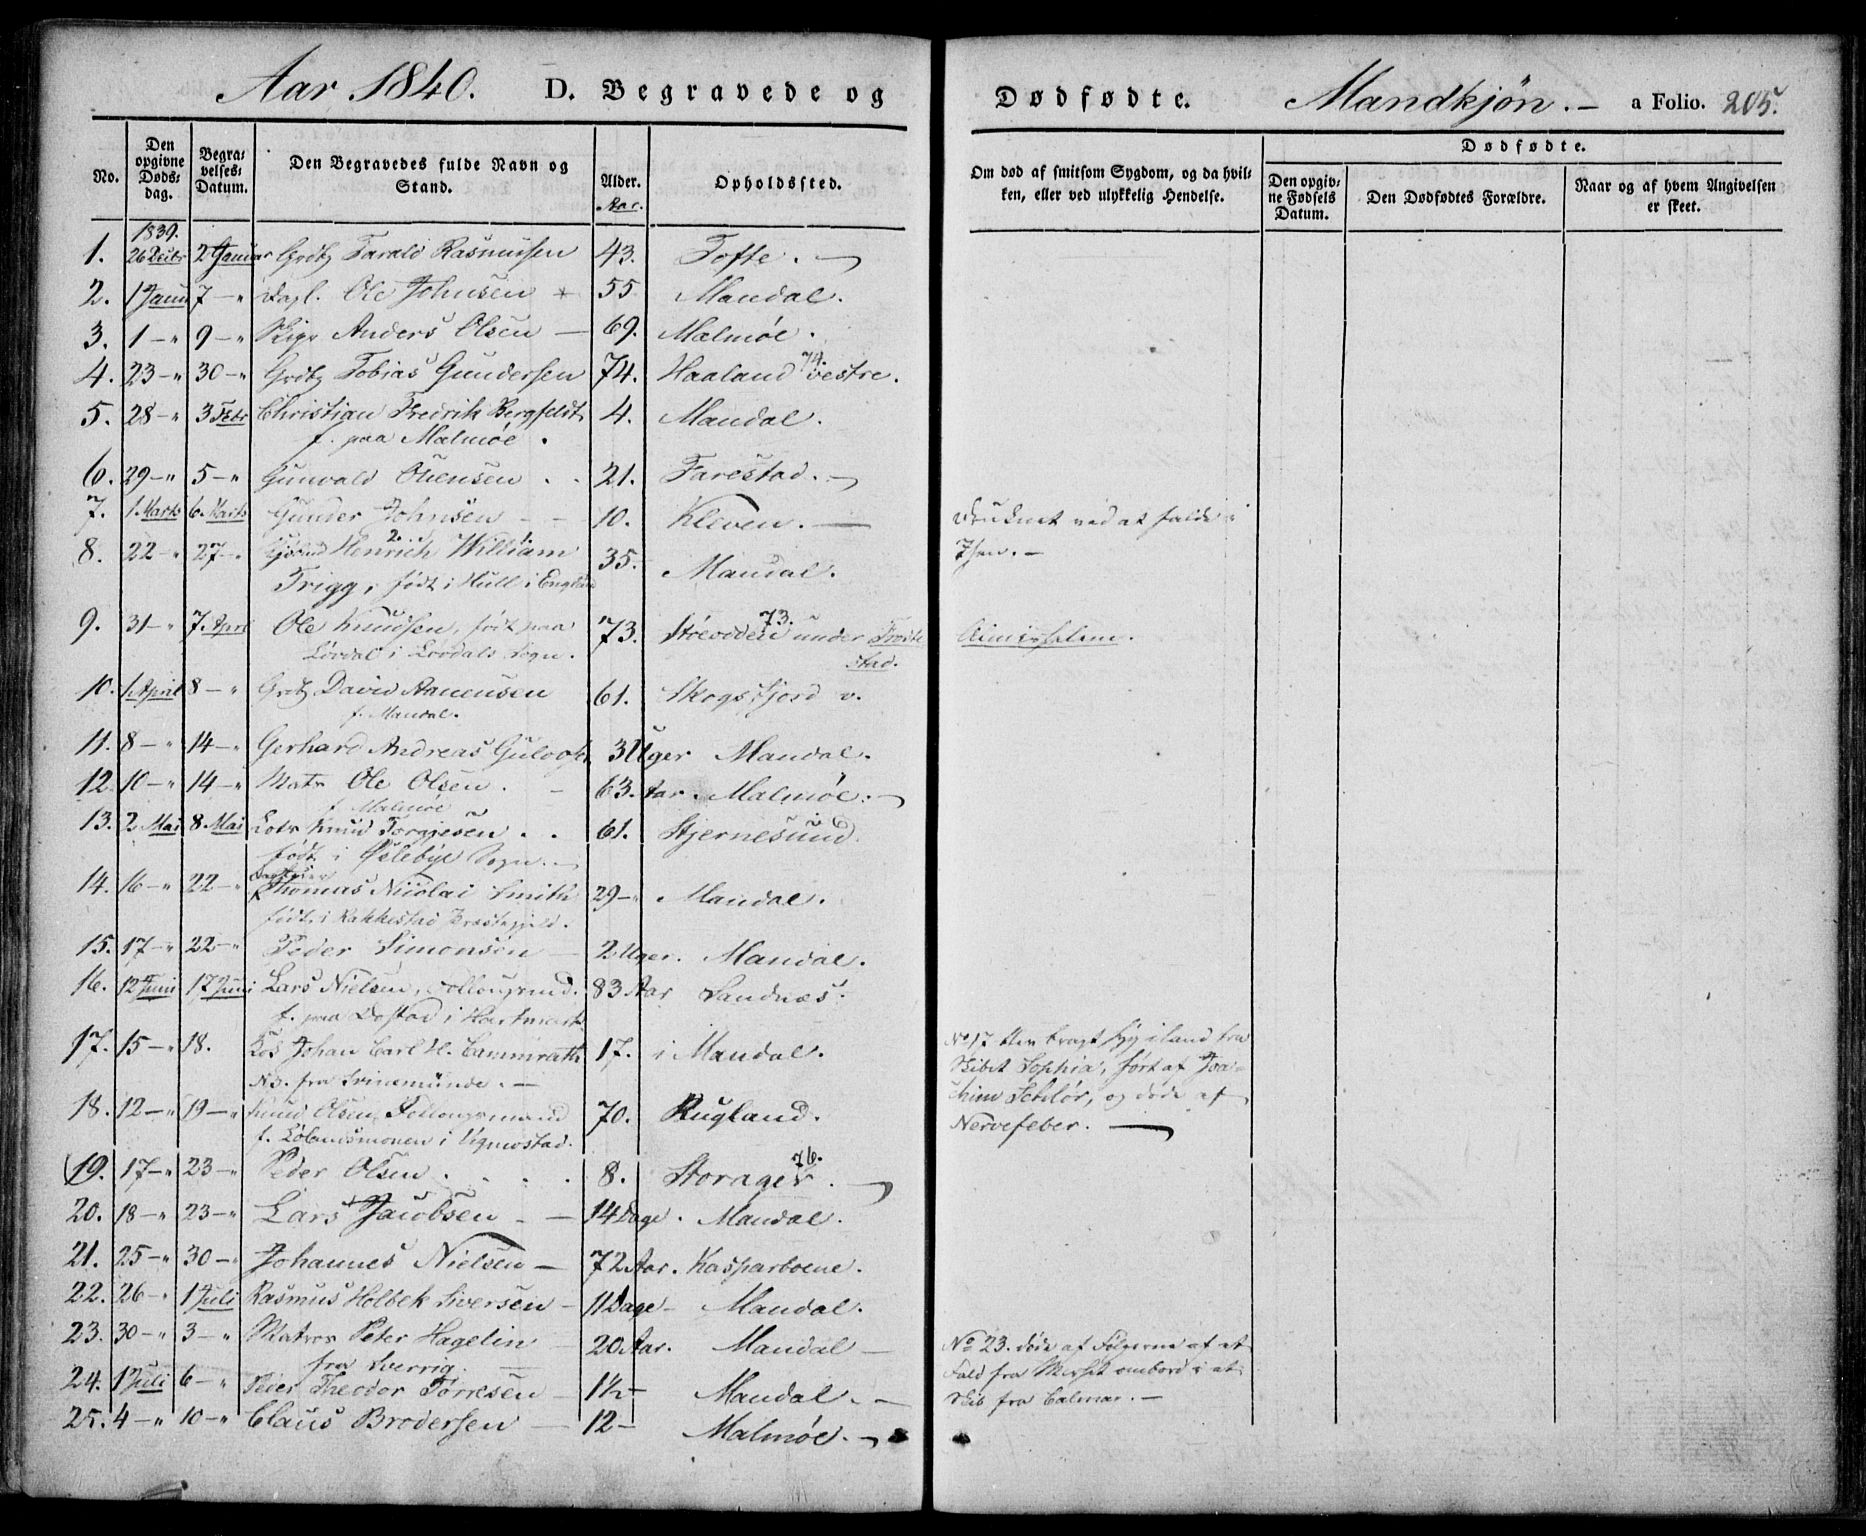 Aar 1840. D. Begravede og Dødfødte. Mandkjøn. — a Folio. 205.
No. Den opgivne Døds-dag. Begra-velses-Datum. Den Begravedes fulde Navn og Stand. Alder. Aar. Opholdssted. Om død af smitsom Sygdom, og da hvil-ken, eller ved ulykkelig Hendelse. Dødfødte. Den opgiv-ne Fødsels Datum. Den Dødfødtes Forældre. Naar og af hvem Angivelsen er skeet.
1839.
1. 26 Decbr 2 Januar Grdbg Tarald Rasmussen 43. Tofte. —
2. 1 Janu 7 — " Dagl. Ole Johnsen 55 Mandal.
3. 1 — " 9 — " Anders Olsen — 69. Malmøe.
4. 23 — " 30 — " Grdbg Tobias Gundersen 74. Haaland vestre. 74.
5. 28 — " 3 Febr Christian Fredrik Bergfeldt 4. Mandal.
f. paa Malmöe.
6. 29 — " 5 — " Gunvald Oliensen 21. Farestad. —
7. 1 Marts 6. Marts Gunder Johnsen — 10. Kleven. — Druknet ved at falde i
8. 22 — " 27 — " Henrich 2. William 1. 35. Mandal. —
Trigg, født i Hull i England
9. 31 — " 7. April Ole Knudsen, født paa 73. Støevolden under Frøite 73.
Lövdal i Lovdals Sogn. stad.
10. 1. April 8 — " Grdb David Aanensen 61. Skogsfjord v.
f. Mandal.
11. 8 — " 14 — " Gerhard Andreas 3 Uger Mandal.
12. 10 — " 14 — " Matr Ole Olsen. — 63. Aar. Malmöe. —
f. Malmöe
13. 2. Mai 8 Mai Lots Knud Torgjesen. . 61. Stjernesund.
født i Øslebye Sogn. —
14. 16 — " 22 — " Thomas Nicolai Smith 29 — " Mandal.
født i Rakkestad Præstegjeld.
15. 17 — " 22 — " Peder Simonsen — 2 Uger. Mandal.
16. 12 Juni 17 Juni Lars Nielsen, Follougsmd. 83 Aar Sandnæs.
f. paa i
17. 15 — " 18. Johan Carl H. Cammrath 17. i Mandal. No 17 blev bragt syg iland fra
No. fra Svinemünde. — Skibet Sophia, ført af Joa-
18. 12 — " 19 — " Knud Olsen, Follougsmand 70. Rugland. chim og døde af
f. i Vigmostad. Nervefeber. —
19. 17 — " 23 — " Peder Olsen . . . . 8. Storager. 76. —
20. 18 — " 23 — " Lars Jacobsen — — 14 Dage. Mandal.
21. 25 — " 30 — " Johannes Nielsen — 72 Aar. Kasparboene.
22. 26 — " 1 Juli Rasmus Holbek Siversen — 11 Dage — Mandal.
23. 30 — " 3 — " Matros Peter Hagelin 20 Aar. Mandal — No 23. døde af Følgerne af et
fra Sverrig. — Fald fra Merset ombord i et
24. 1 Juli 6 — " Peder Theodor Torresen — 1½ — Mandal. — Skib fra Calmar. —
25. 4 — " 10 — " Claus Brodersen — 12 — Malmøe. —